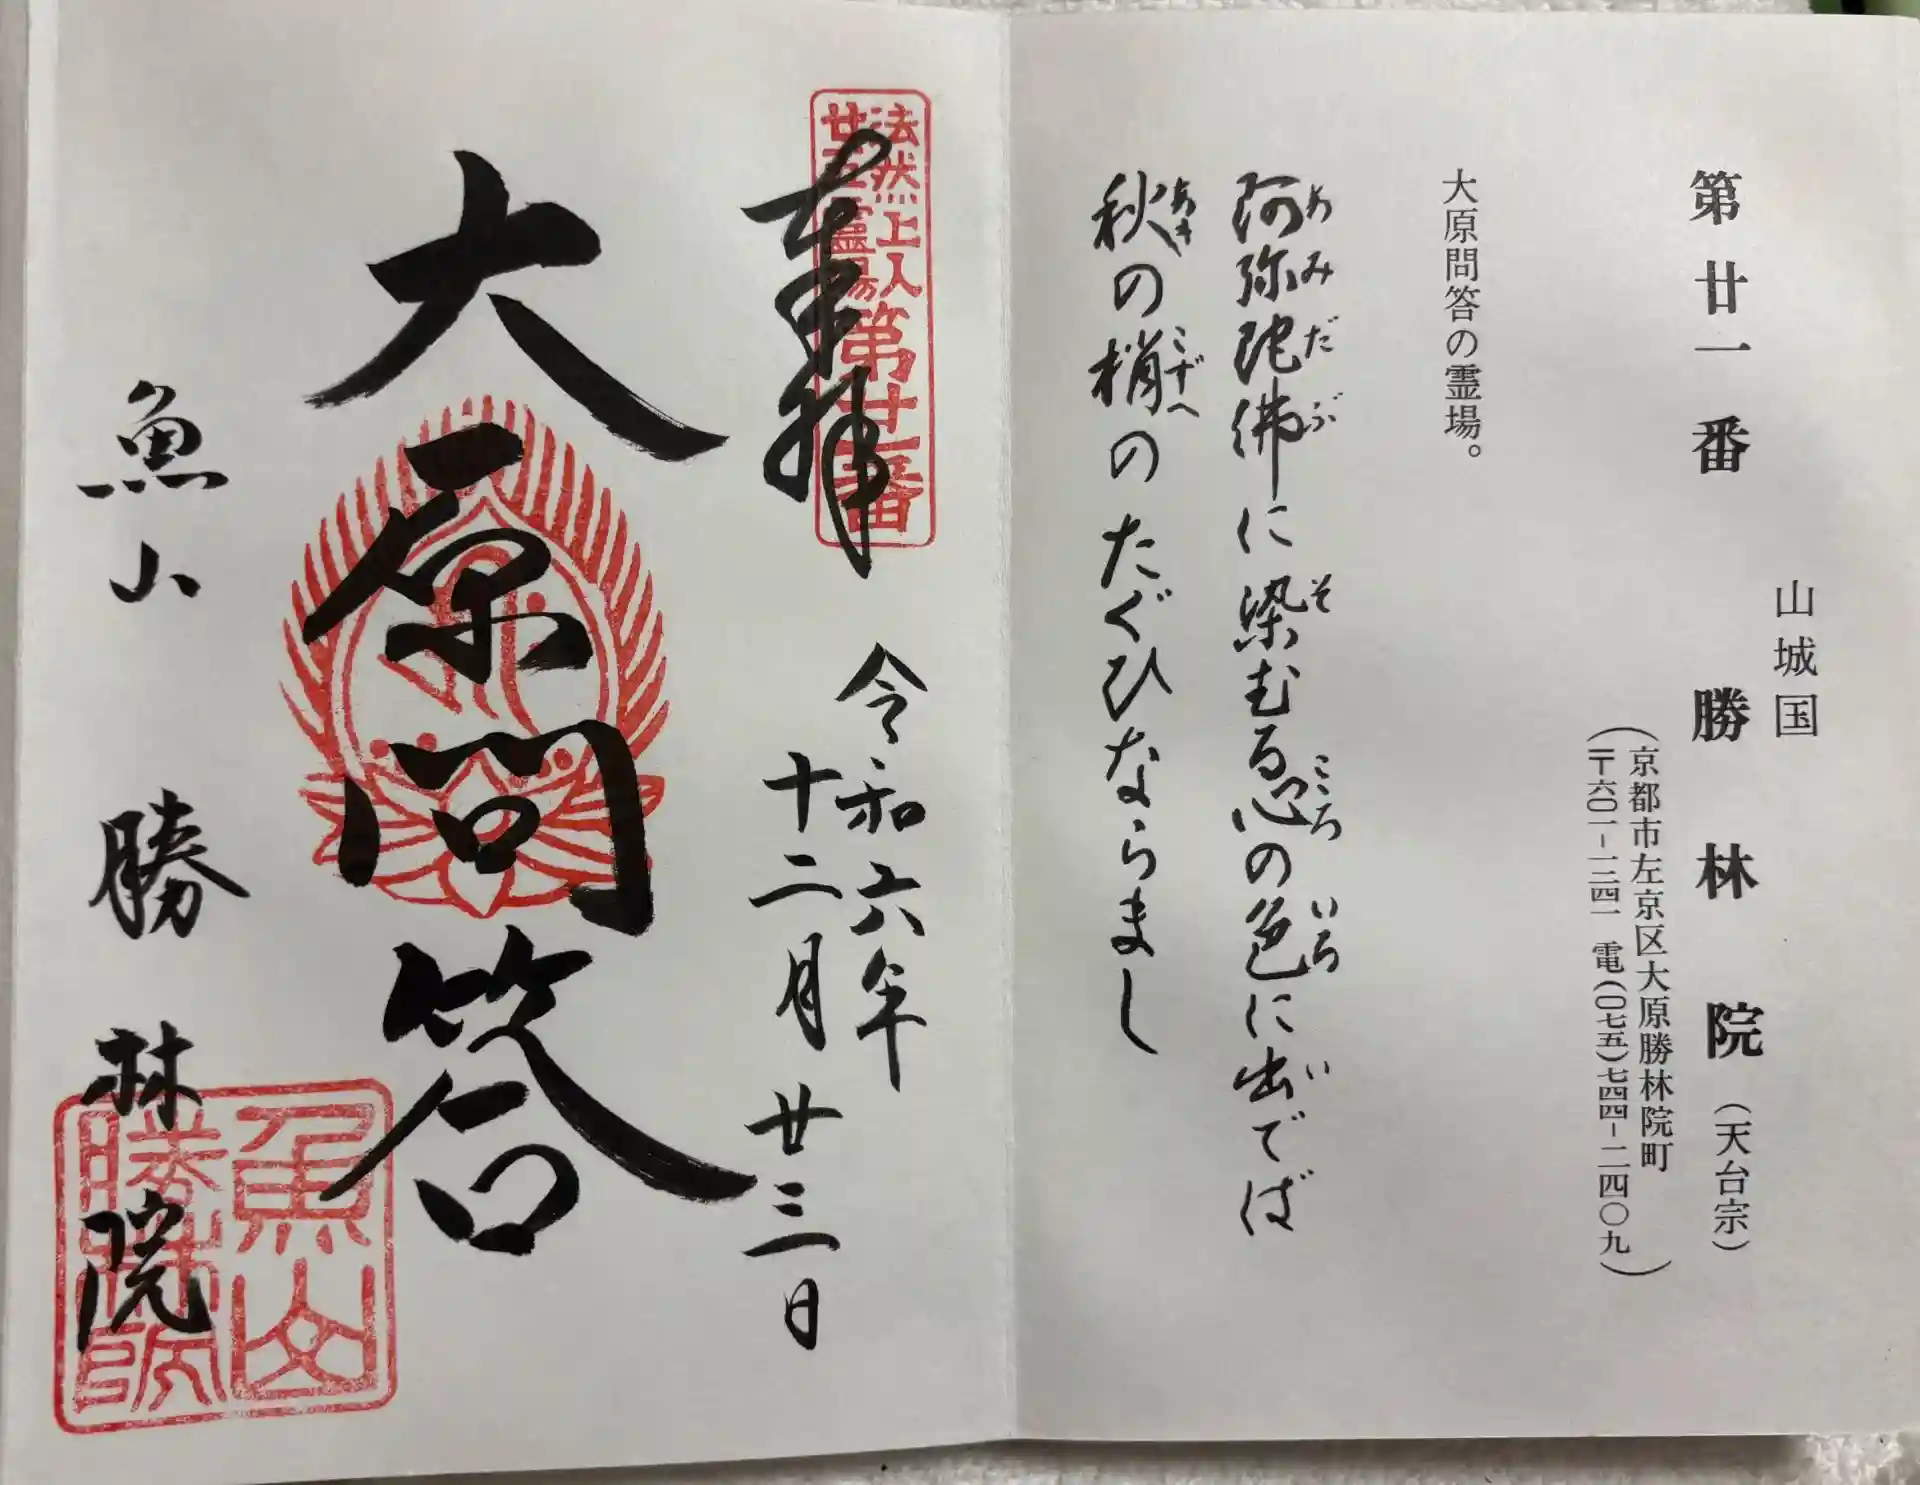 第廿一番 勝林院(天台宗)
山城国
(京都市左京区大原勝林院町
〒六〇一-一二四一 電(〇七五)七四四-二四〇九)
大原問答の霊場。
阿弥陀佛に染むる心の色に出でば
あみだぶ そ こころ いろ い
秋の梢のたぐひならまし
あき こずへ
法然上人
廿五霊場
第廿一番
奉拝
令和六年
十二月廿三日
大原問答
魚山 勝林院
魚山
勝林院